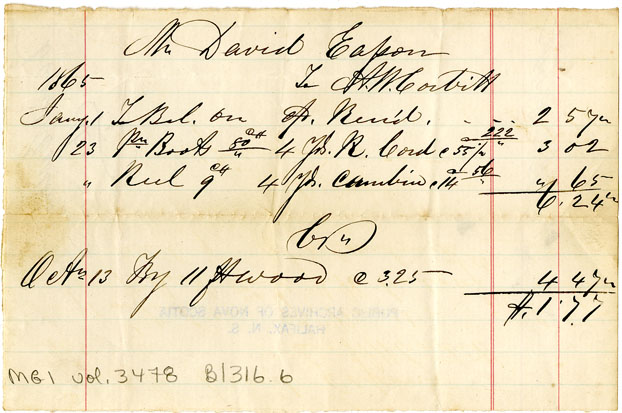 Mr David Eason
1865 To H.W. Corbitt
Jany. 1 To Bal. on a/c Rend. 2 57½
23 Pr Boots 80 cts 4 Yds. R. Cord @ 55½ 222 3 02
" Reel 9 cts 4 Yds. @ 14 56 " 65
6.24½
Cr
Oct 13 By 11 ft wood @ 3.25 4 47½
$1.77
PUBLIC ARCHIVES OF NOVA SCOTIA
HALIFAX, N. S.
MG1 vol. 3478 B/316.6